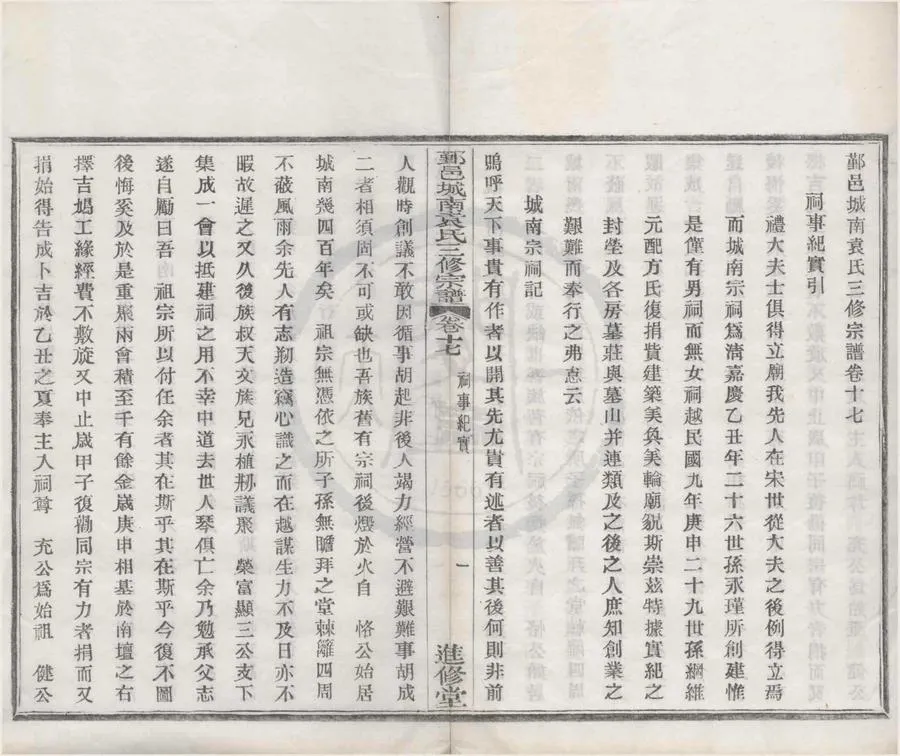 鄞邑城南袁氏三修宗譜卷十七
祠事紀實引
禮大夫士俱得立廟我先人在宋世從大夫之後例得立焉
而城南宗祠爲淸嘉慶乙丑年二十六世孫永瑾所創建惟
是僅有男祠而無女祠越民國九年庚申二十九世孫綱維
元配方氏復捐貲建築美奐美輪廟貌斯崇玆特據實紀之
封塋及各房墓莊與墓山并連類及之後之人庶知創業之
艱難而奉行之弗怠云
城南宗祠記
嗚呼天下事貴有作者以開其先尤貴有述者以善其後何則非前
鄞邑城南袁氏三修宗譜 卷十七 祠事紀實 一 進修堂
人觀時創議不敢因循事胡起非後人竭力經營不避艱難事胡成
二者相須固不可或缺也吾族舊有宗祠後燬於火自 恪公始居
城南幾四百年矣 祖宗無憑依之所子孫無瞻拜之堂棘籬四周
不蔽風雨余先人有志剙造竊心識之而在越謀生力不及日亦不
暇故遲之又久後族叔天文族兄永植剙議聚 榮富顯三公支下
集成一會以抵建祠之用不幸中道去世人琴俱亡余乃勉承父志
遂自勵曰吾 祖宗所以付任余者其在斯乎其在斯乎今復不圖
後悔奚及於是重聚兩會積至千有餘金歲庚申相基於南壇之右
擇吉鳩工緣經費不敷旋又中止歲甲子復勸同宗有力者捐而又
捐始得告成卜吉於乙丑之夏奉主入祠尊 充公爲始祖 健公